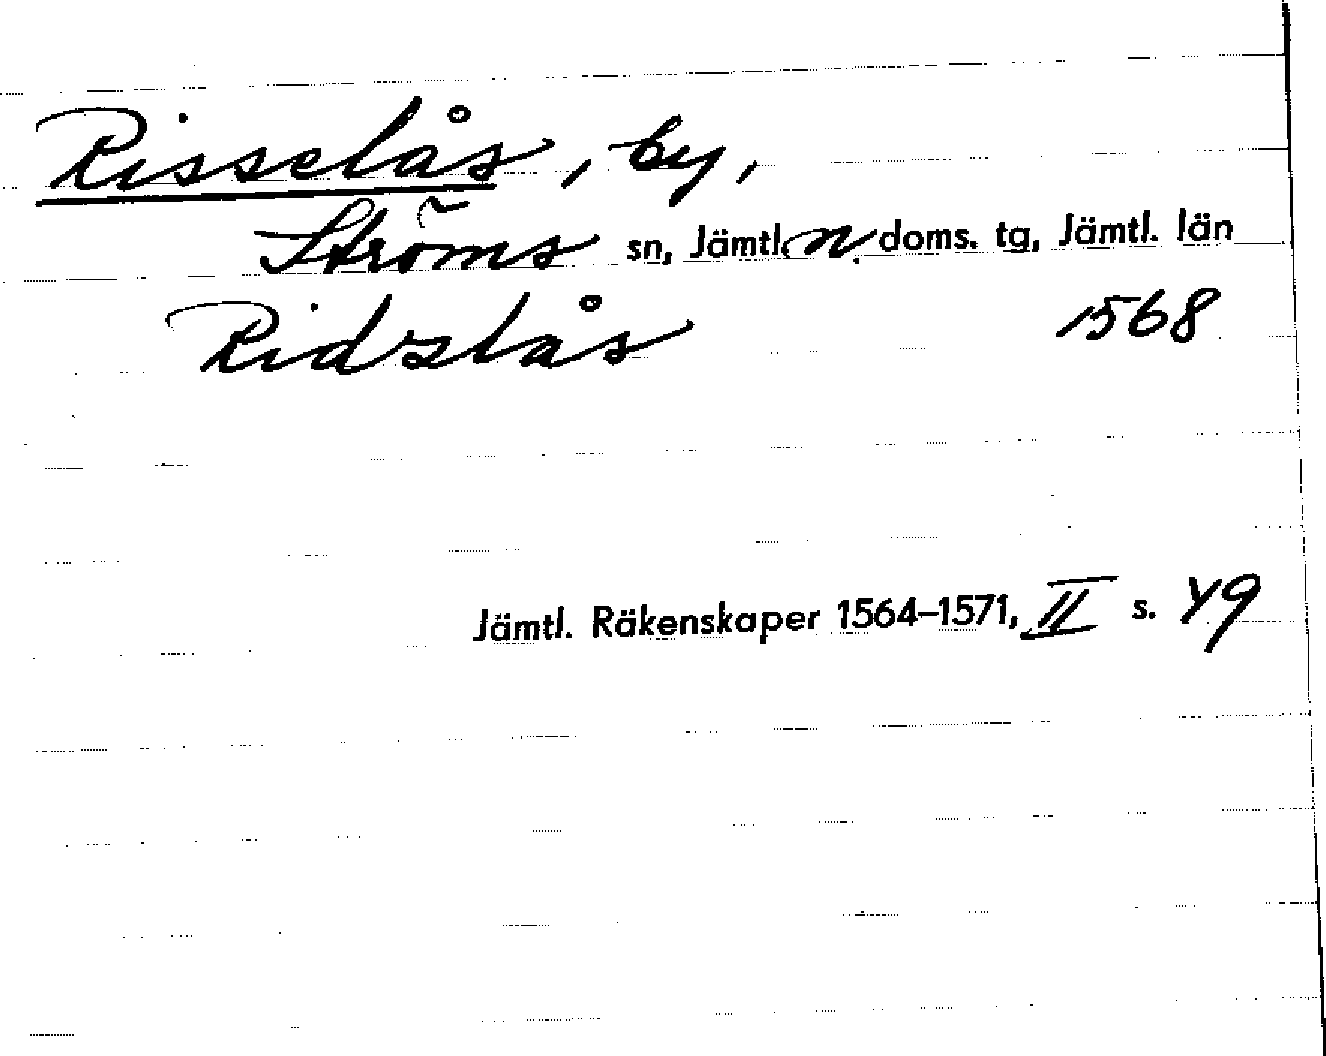 Risselås, by,
Ströms sn, Jämtl. n. doms. tg, Jämtl. län
Ridzlås 1568
Jämtl. Räkenskaper 1564–1571, II s. 49